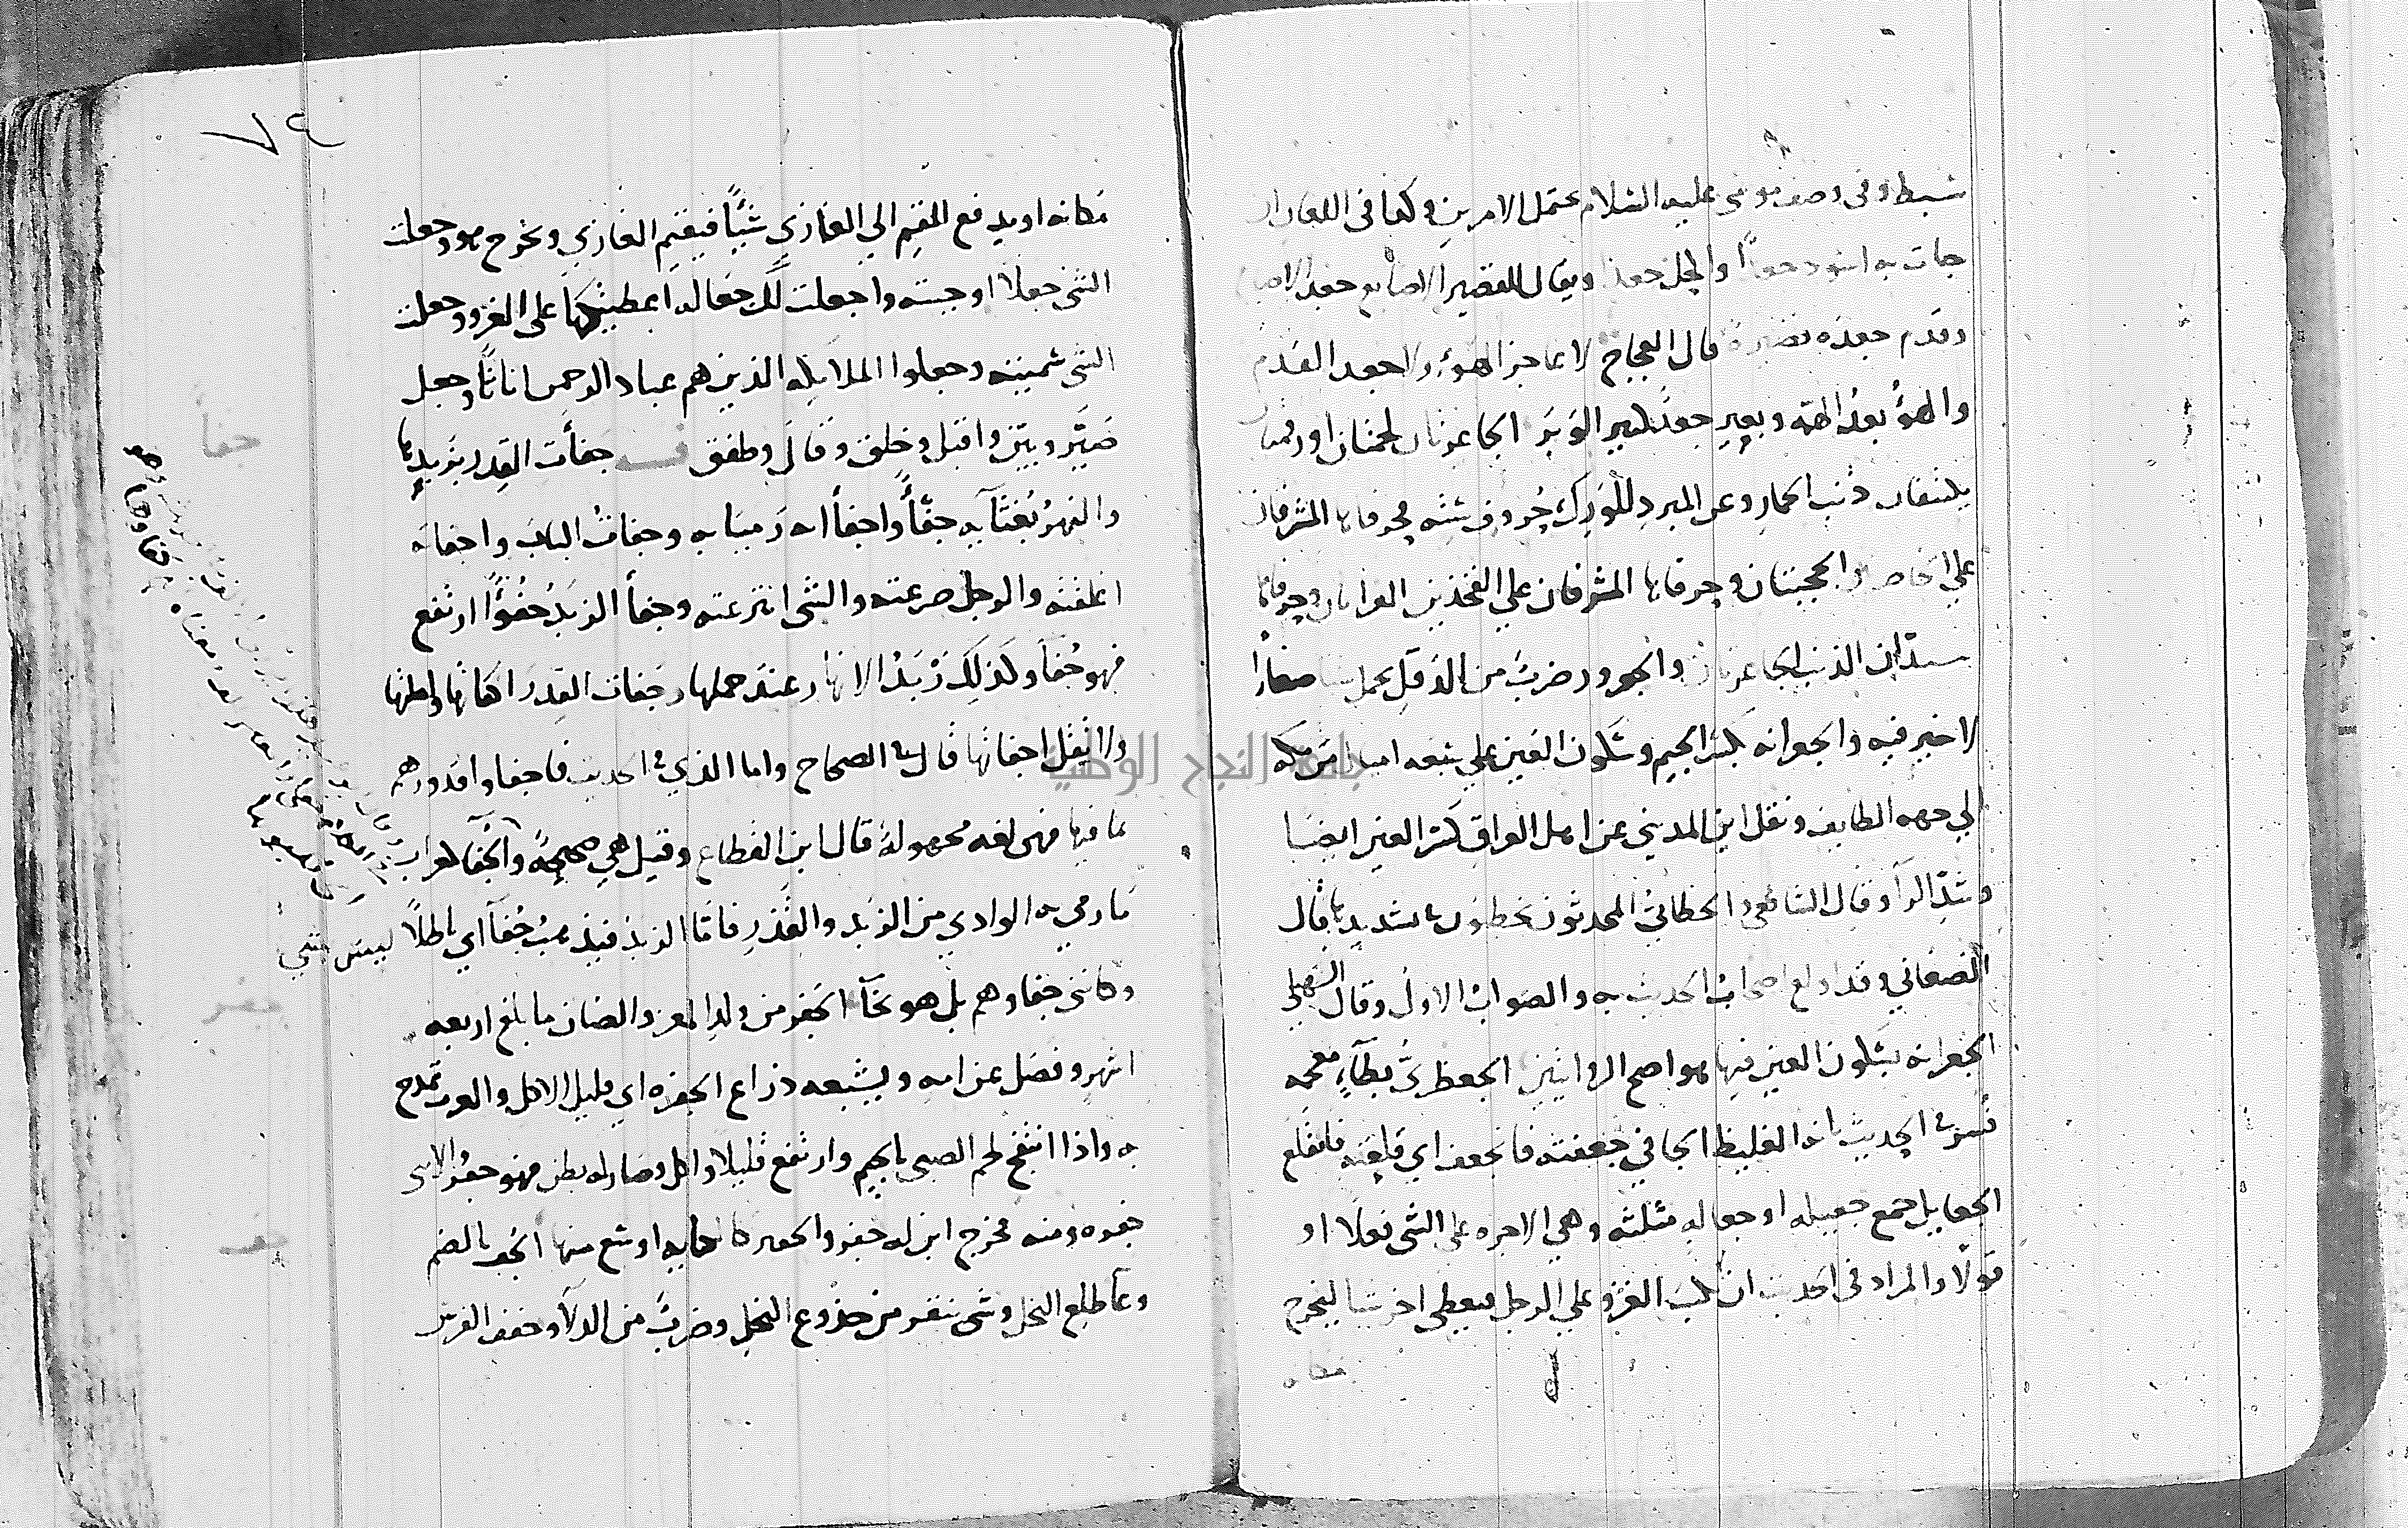 سبط وفى وصف موسى عليه السلام محتمل الامرين وكذا فى اللعان ان
جات به اسود جعدا والرجل جعد ويقال للقصير الاصابع جعد الاصابع
وقدم جعده قصيرة قال العجاج لا عاجز الهوء ولا جعد القدم
والهوء بعد الهمه وبعير جعد كثير الوبر الجاعرتان لحمتان او رقمتان
يكتنفان ذنب الحمار وعن المبرد للورك حروف سته فحرفاها المشرفان
على الخاصره الحجبتان وحرفاها المشرفان على الفخذين الغرابان وحرفاها
يبتدان الذنب الجاعرتان والجعرور ضرب من الدقل يحمل شيا صغارا
لا خير فيه والجعرانه بكسر الجيم وسكون العين على سبعه اميال من مكه
الى جهه الطايف ونقل ابن المديني عن اهل العراق كسر العين ايضا
وشد الرا وقال الشافعى والخطابي المحدثون يخطئون فى تشديدها قال
الصغاني وقد اولع اصحاب الحديث به والصواب الاول وقال السهيلي
الجعرانه بسكون العين فيها هو اصح الروايتين الجعظري بظاء معجمه
فسر فى الحديث بانه الغليظ الجافي جعفته فانجعف اي قلعته فانقلع
الجعايل جمع جعيله او جعاله مثلثه وهي الاجره على الشى فعلا او
قولا والمراد فى الحديث ان يكتب الغزو على الرجل فيعطى اخر شيا ليخرج
مكانه
٧٤
مكانه او يدفع المقيم الي الغازي شيا فيقيم الغازي ويخرج هو وجعلت
الشى جعلا اوجبته واجعلت لك جعاله اعطيتكها على الغزو وجعلت
الشى سميته وجعلوا الملايكه الذين هم عباد الرحمن اناثا وجعل
صير وبين واقبل وخلق وقال وطفق جفأت القدر بزبدها
جفا
والنهر بغثآيه جفأ واجفأ اى رميا به وجفات الباب واجفاته
اغلقته والرجل صرعته والشى انتزعته وجفأ الزبد جفوءا ارتفع
فهو جفآ وكذلك زبد الانهار عند حملها وجفات القدر اكفاتها واملتها
ولا تقل اجفاتها قال فى الصحاح واما الذي فى الحديث فاجفاوا قدورهم
بما فيها فهى لغه مجهولة قال ابن القطاع وقيل هي صحيحة والجفآ كغراب
ما رمي به الوادي من الزبد والقذر فاما الزبد فيذهب جفآ اي باطلا ليس بشي
وكانى جفا وهم بل هو بخآ الجفر من ولد المعز والضان ما بلغ اربعه
جفر
اشهر وفصل عن امه ويشبعه ذراع الجفره اي قليل الاكل والعرب تمدح
به واذا انتفخ لحم الصبى بالجيم وارتفع قليلا واكل وصار له بطن فهو جفر والانثى
جفره ومنه فخرج ابن له جفر اوسع منها الجف بالضم
جف
وعآ طلع النخل وشى ينقر من جذوع النخل وضرب من الدلآ وجفف الفرس